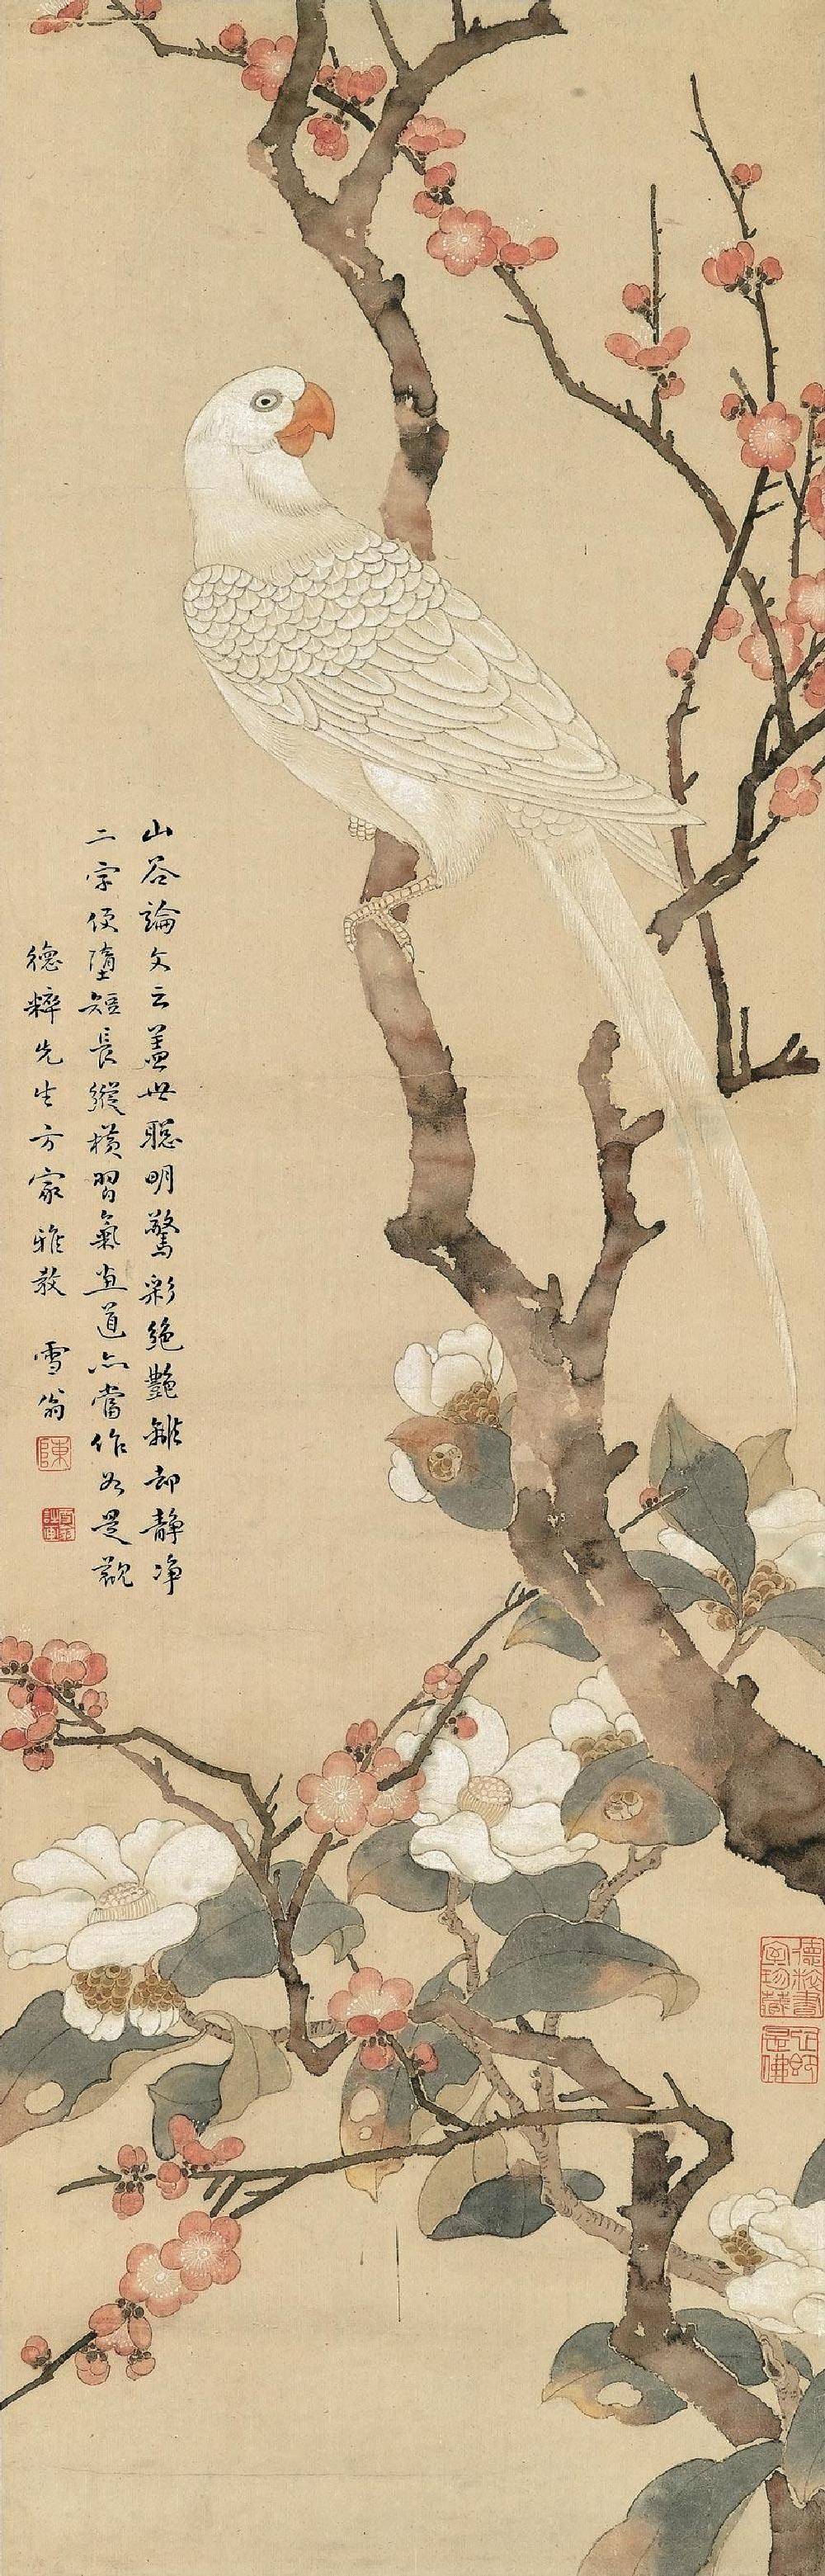 山谷論文云蓋世聰明驚彩絕艷離却靜淨
二字便墮短長縱橫習氣直道亦當作如是觀
德粹先生方家雅教 雪翁
陳